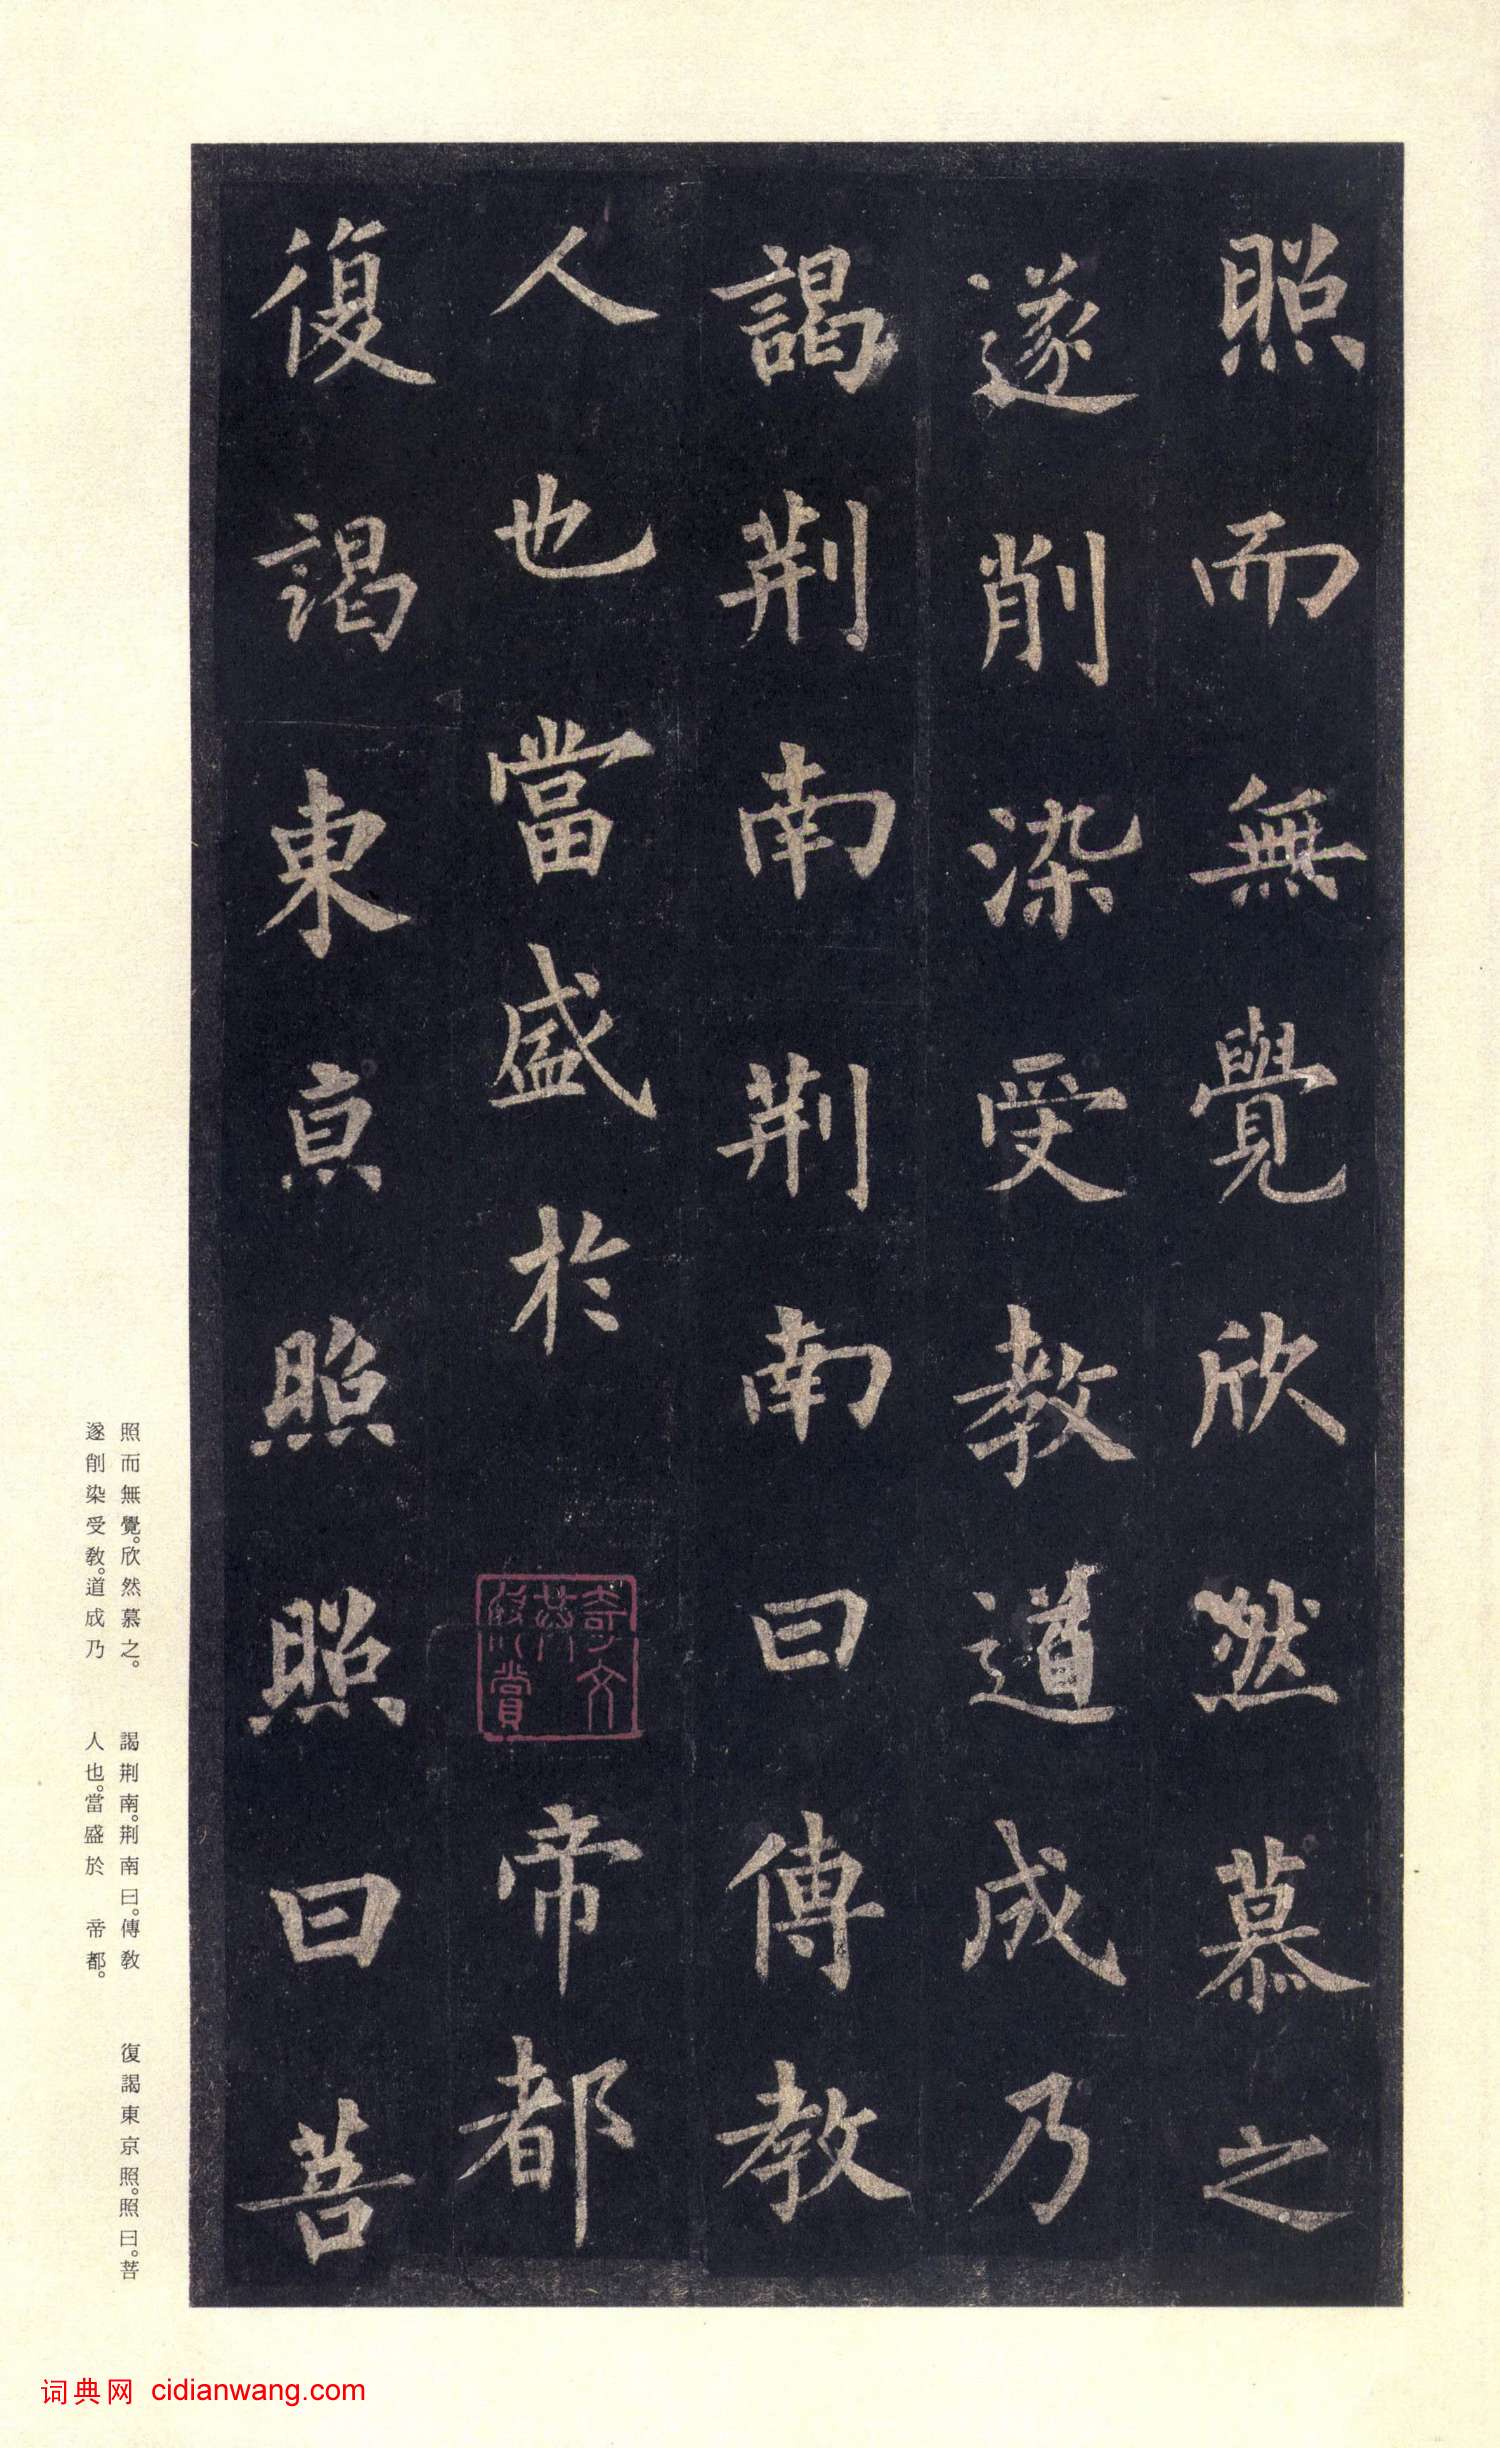 照而無覺欣然慕之
遂削染受教道成乃
謁荆南荆南曰傳教
人也當盛於 帝都
復謁東京照照曰菩
照而無覺。欣然慕之。
遂削染受教。道成乃
謁荆南。荆南曰。傳教
人也。當盛於 帝都。
復謁東京照。照曰。菩
词典网 cidianwang.com